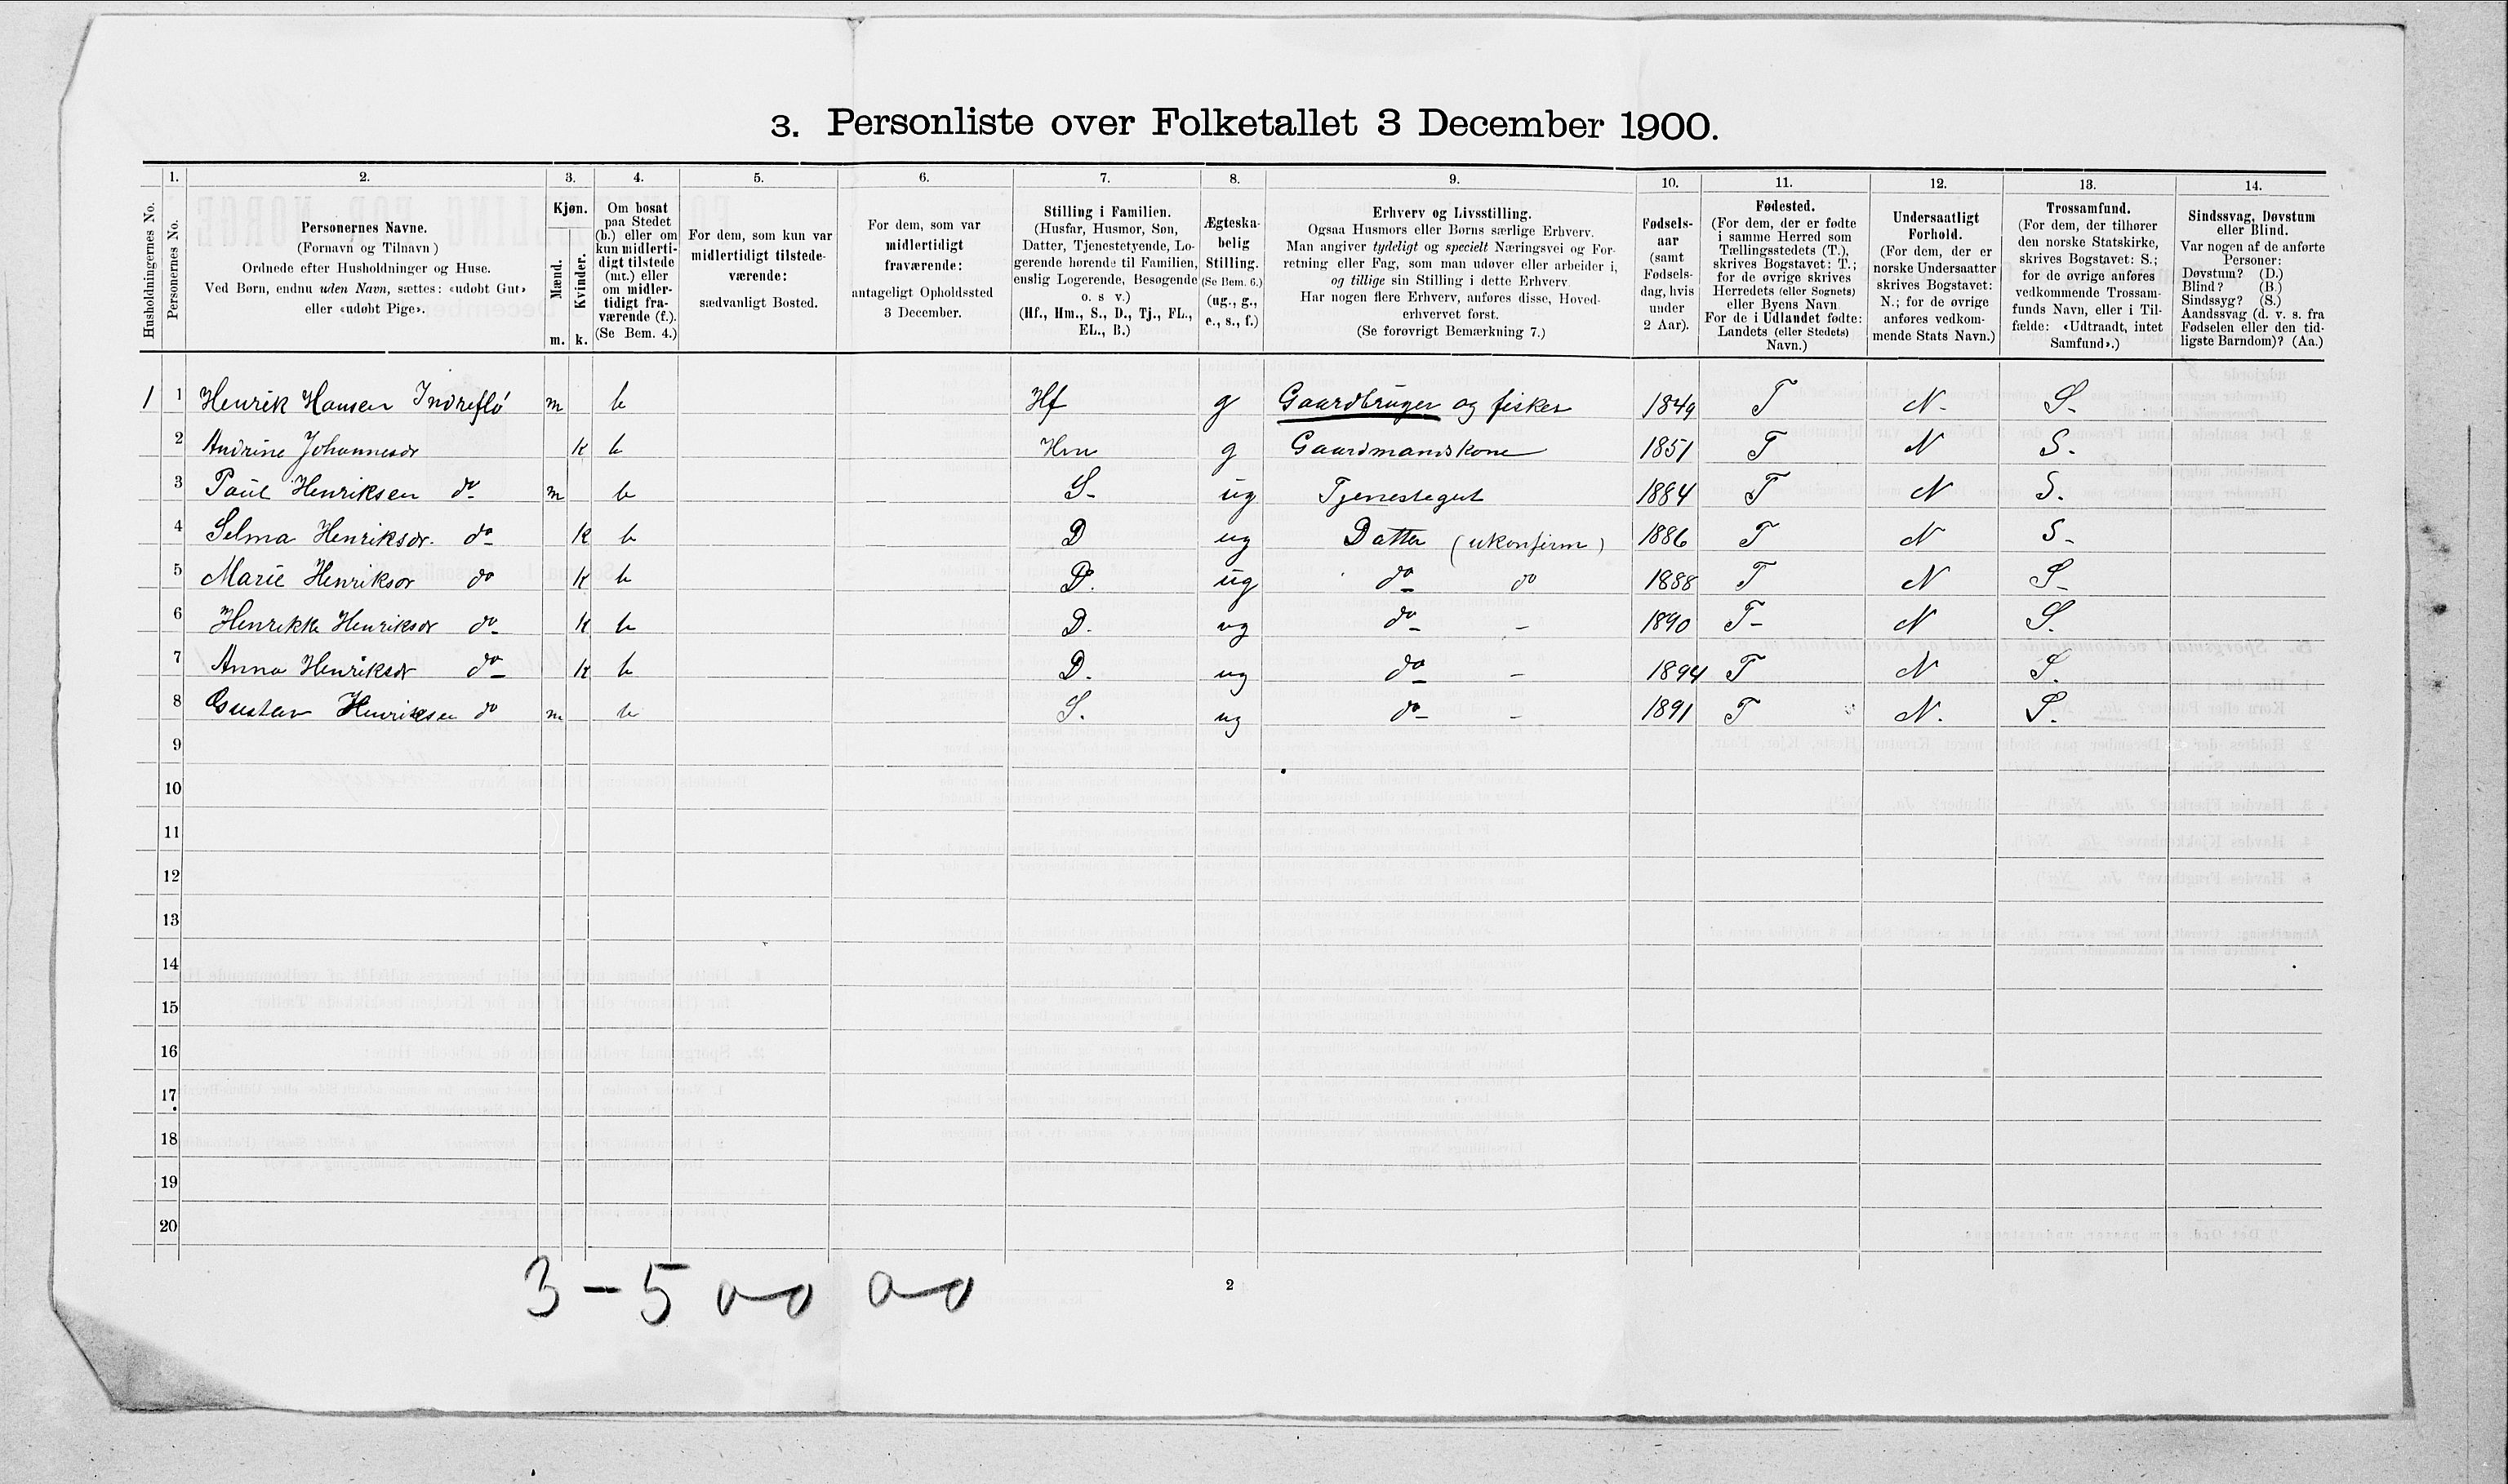 3. Personliste over Folketallet 3 December 1900.
Husholdningernes No.
1.
Personernes No.
2.
Personernes Navne.
(Fornavn og Tilnavn)
Ordnede efter Husholdninger og Huse.
Ved Børn, endnu uden Navn, sættes: «udøbt Gut»
eller «udøbt Pige».
3.
Kjøn.
Mænd.
Kvinder.
m. k.
4.
Om bosat
paa Stedet
(b.) eller om
kun midlerti-
digt tilstede
(mt.) eller
om midler-
tidigt fra-
værende (f.).
(Se Bem. 4.)
5.
For dem, som kun var
midlertidigt tilstede-
værende:
sædvanligt Bosted.
6.
For dem, som var
midlertidigt
fraværende:
antageligt Opholdssted
3 December.
7.
Stilling i Familien.
(Husfar, Husmor, Søn,
Datter, Tjenestetyende, Lo-
gerende hørende til Familien,
enslig Logerende, Besøgende
o. s v.)
(Hf., Hm., S., D., Tj., FL.,
EL., B.)
8.
Ægteska-
belig
Stilling.
(Se Bem. 6.)
(ug., g.,
e., s., f.)
9.
Erhverv og Livsstilling.
Ogsaa Husmors eller Børns særlige Erhverv.
Man angiver tydeligt og specielt Næringsvei og For-
retning eller Fag, som man udøver eller arbeider i,
og tillige sin Stilling i dette Erhverv.
Har nogen flere Erhverv, anføres disse, Hoved-
erhvervet først.
(Se forøvrigt Bemærkning 7.)
10.
Fødsels-
aar
(samt
Fødsels-
dag, hvis
under
2 Aar).
11.
Fødested.
(For dem, der er fødte
i samme Herred som
Tællingsstedets (T.),
skrives Bogstavet: T.;
for de øvrige skrives
Herredets (eller Sognets)
eller Byens Navn
For de i Udlandet fødte:
Landets (eller Stedets)
Navn.)
12.
Undersaatligt
Forhold.
(For dem, der er
norske Undersaatter
skrives Bogstavet:
N.; for de øvrige
anføres vedkom-
mende Stats Navn.)
13.
Trossamfund.
(For dem, der tilhører
den norske Statskirke,
skrives Bogstavet: S.;
for de øvrige anføres
vedkommende Trossam-
funds Navn, eller i Til-
fælde: «Udtraadt, intet
Samfund».)
14.
Sindssvag, Døvstum
eller Blind.
Var nogen af de anførte
Personer:
Døvstum? (D.)
Blind? (B.)
Sindssyg? (S.)
Aandssvag (d. v. s. fra
Fødselen eller den tid-
ligste Barndom)? (Aa.)
1 1 Henrik Hansen Indreflö m b Hf g Gaardbruger og fisker 1849 T N. S.
2 Andrine Johannesdr k b Hm g Gaardmandskone 1851 T N S.
3 Paul Henriksen do m b S. ug Tjenestegut 1884 T N S.
4 Selma Henriksdr. do k b D ug Datter (ukonfirm) 1886 T N S.
5 Marie Henriksdr do k b D. ug do do 1888 T N S.
6 Henrikke Henriksdr do k b D. ug do - 1890 T N S.
7 Anna Henriksdr do k b D. ug do - 1894 T N S.
8 Gustav Henriksen do m b S. ug do - 1891 T N. S.
9
10
11
12
13
14
15
16
17
18
19
20
3-5
2